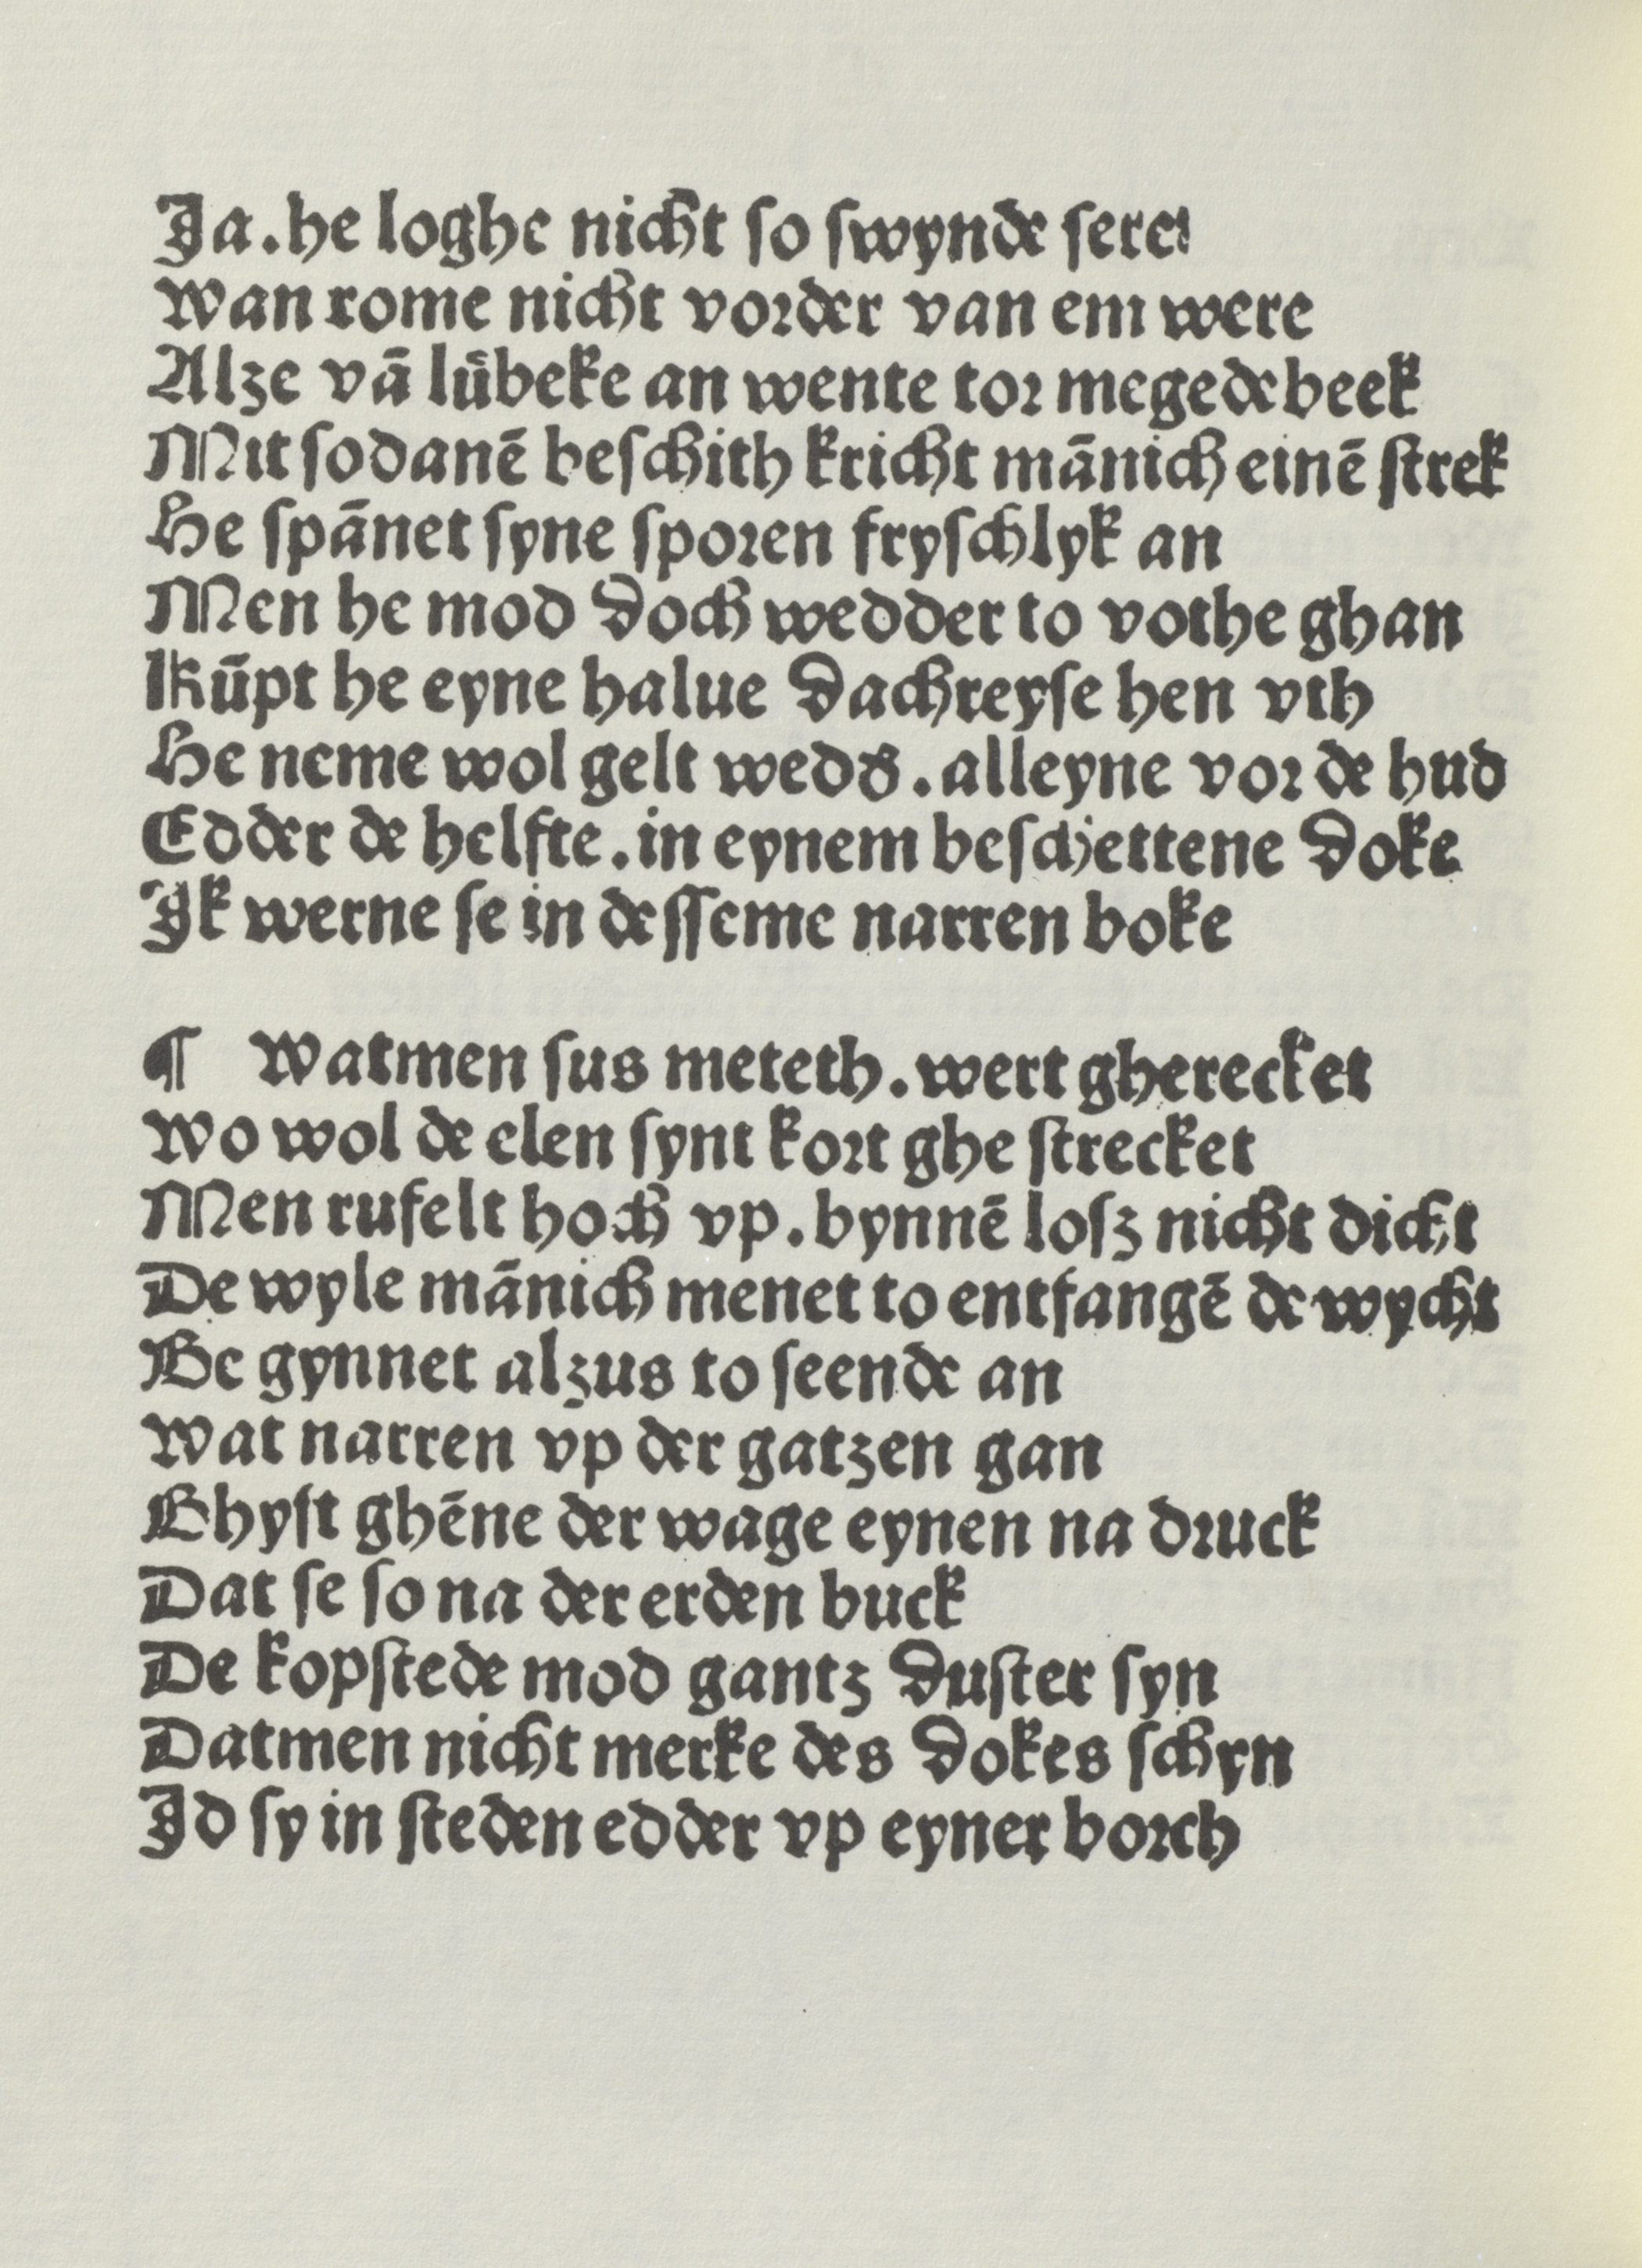 Ja. he loghe nicht so swynde sere
Wan rome nicht vorder van em were
Alze vā lůbeke an wente tor megedebeek
Mit sodanē beschith kricht mānich einē strek
He spānet syne sporen fryschlyk an
Men he mod doch wedder to vothe ghan
Kūpt he eyne halue dachreyse hen vth
He neme wol gelt wedꝭ. alleyne vor de hud
Edder de helfte. in eynem beschettene doke
Ik werne se in desseme narren boke
¶ Watmen sus meteth. wert gherecket
Wo wol de elen synt kort ghe strecket
Men rufelt hoch vp. bynnē losz nicht dicht
De wyle mānich menet to entfangē de wycht
Be gynnet alzus to seende an
Wat narren vp der gatzen gan
Ghyft ghēne der wage eynen na druck
Dat se so na der erden buck
De kopstede mod gantz duster syn
Datmen nicht merke des dokes schyn
Id sy in steden edder vp eyner borch